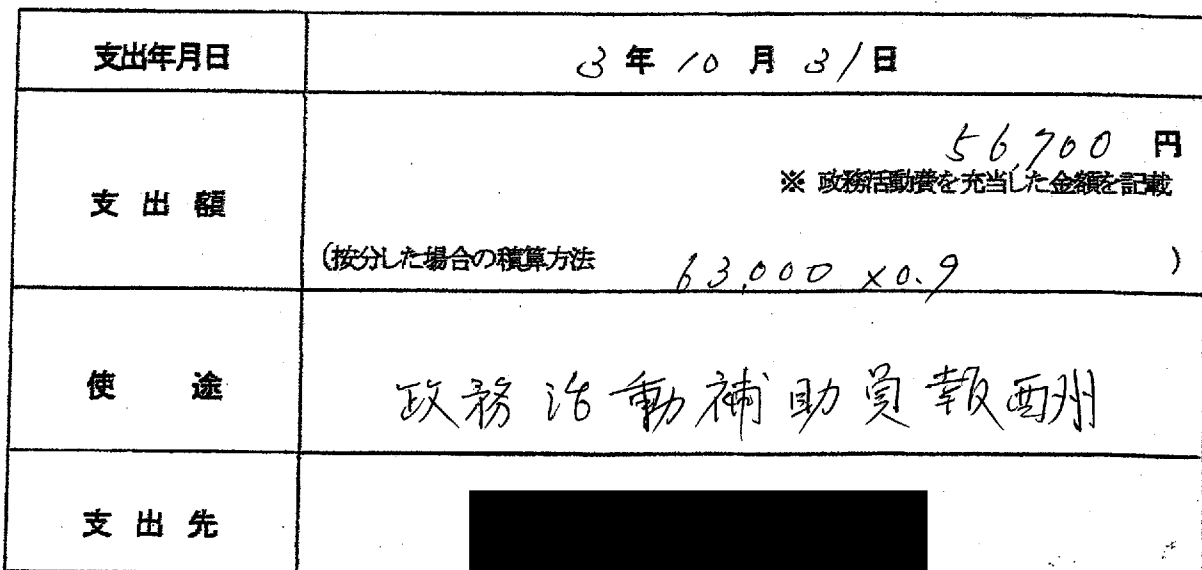 支出年月日 3年10月31日
支出額 56,700円
※ 政務活動費を充当した金額を記載
(按分した場合の積算方法 63,000×0.9 )
使途 政務活動補助員報酬
支出先